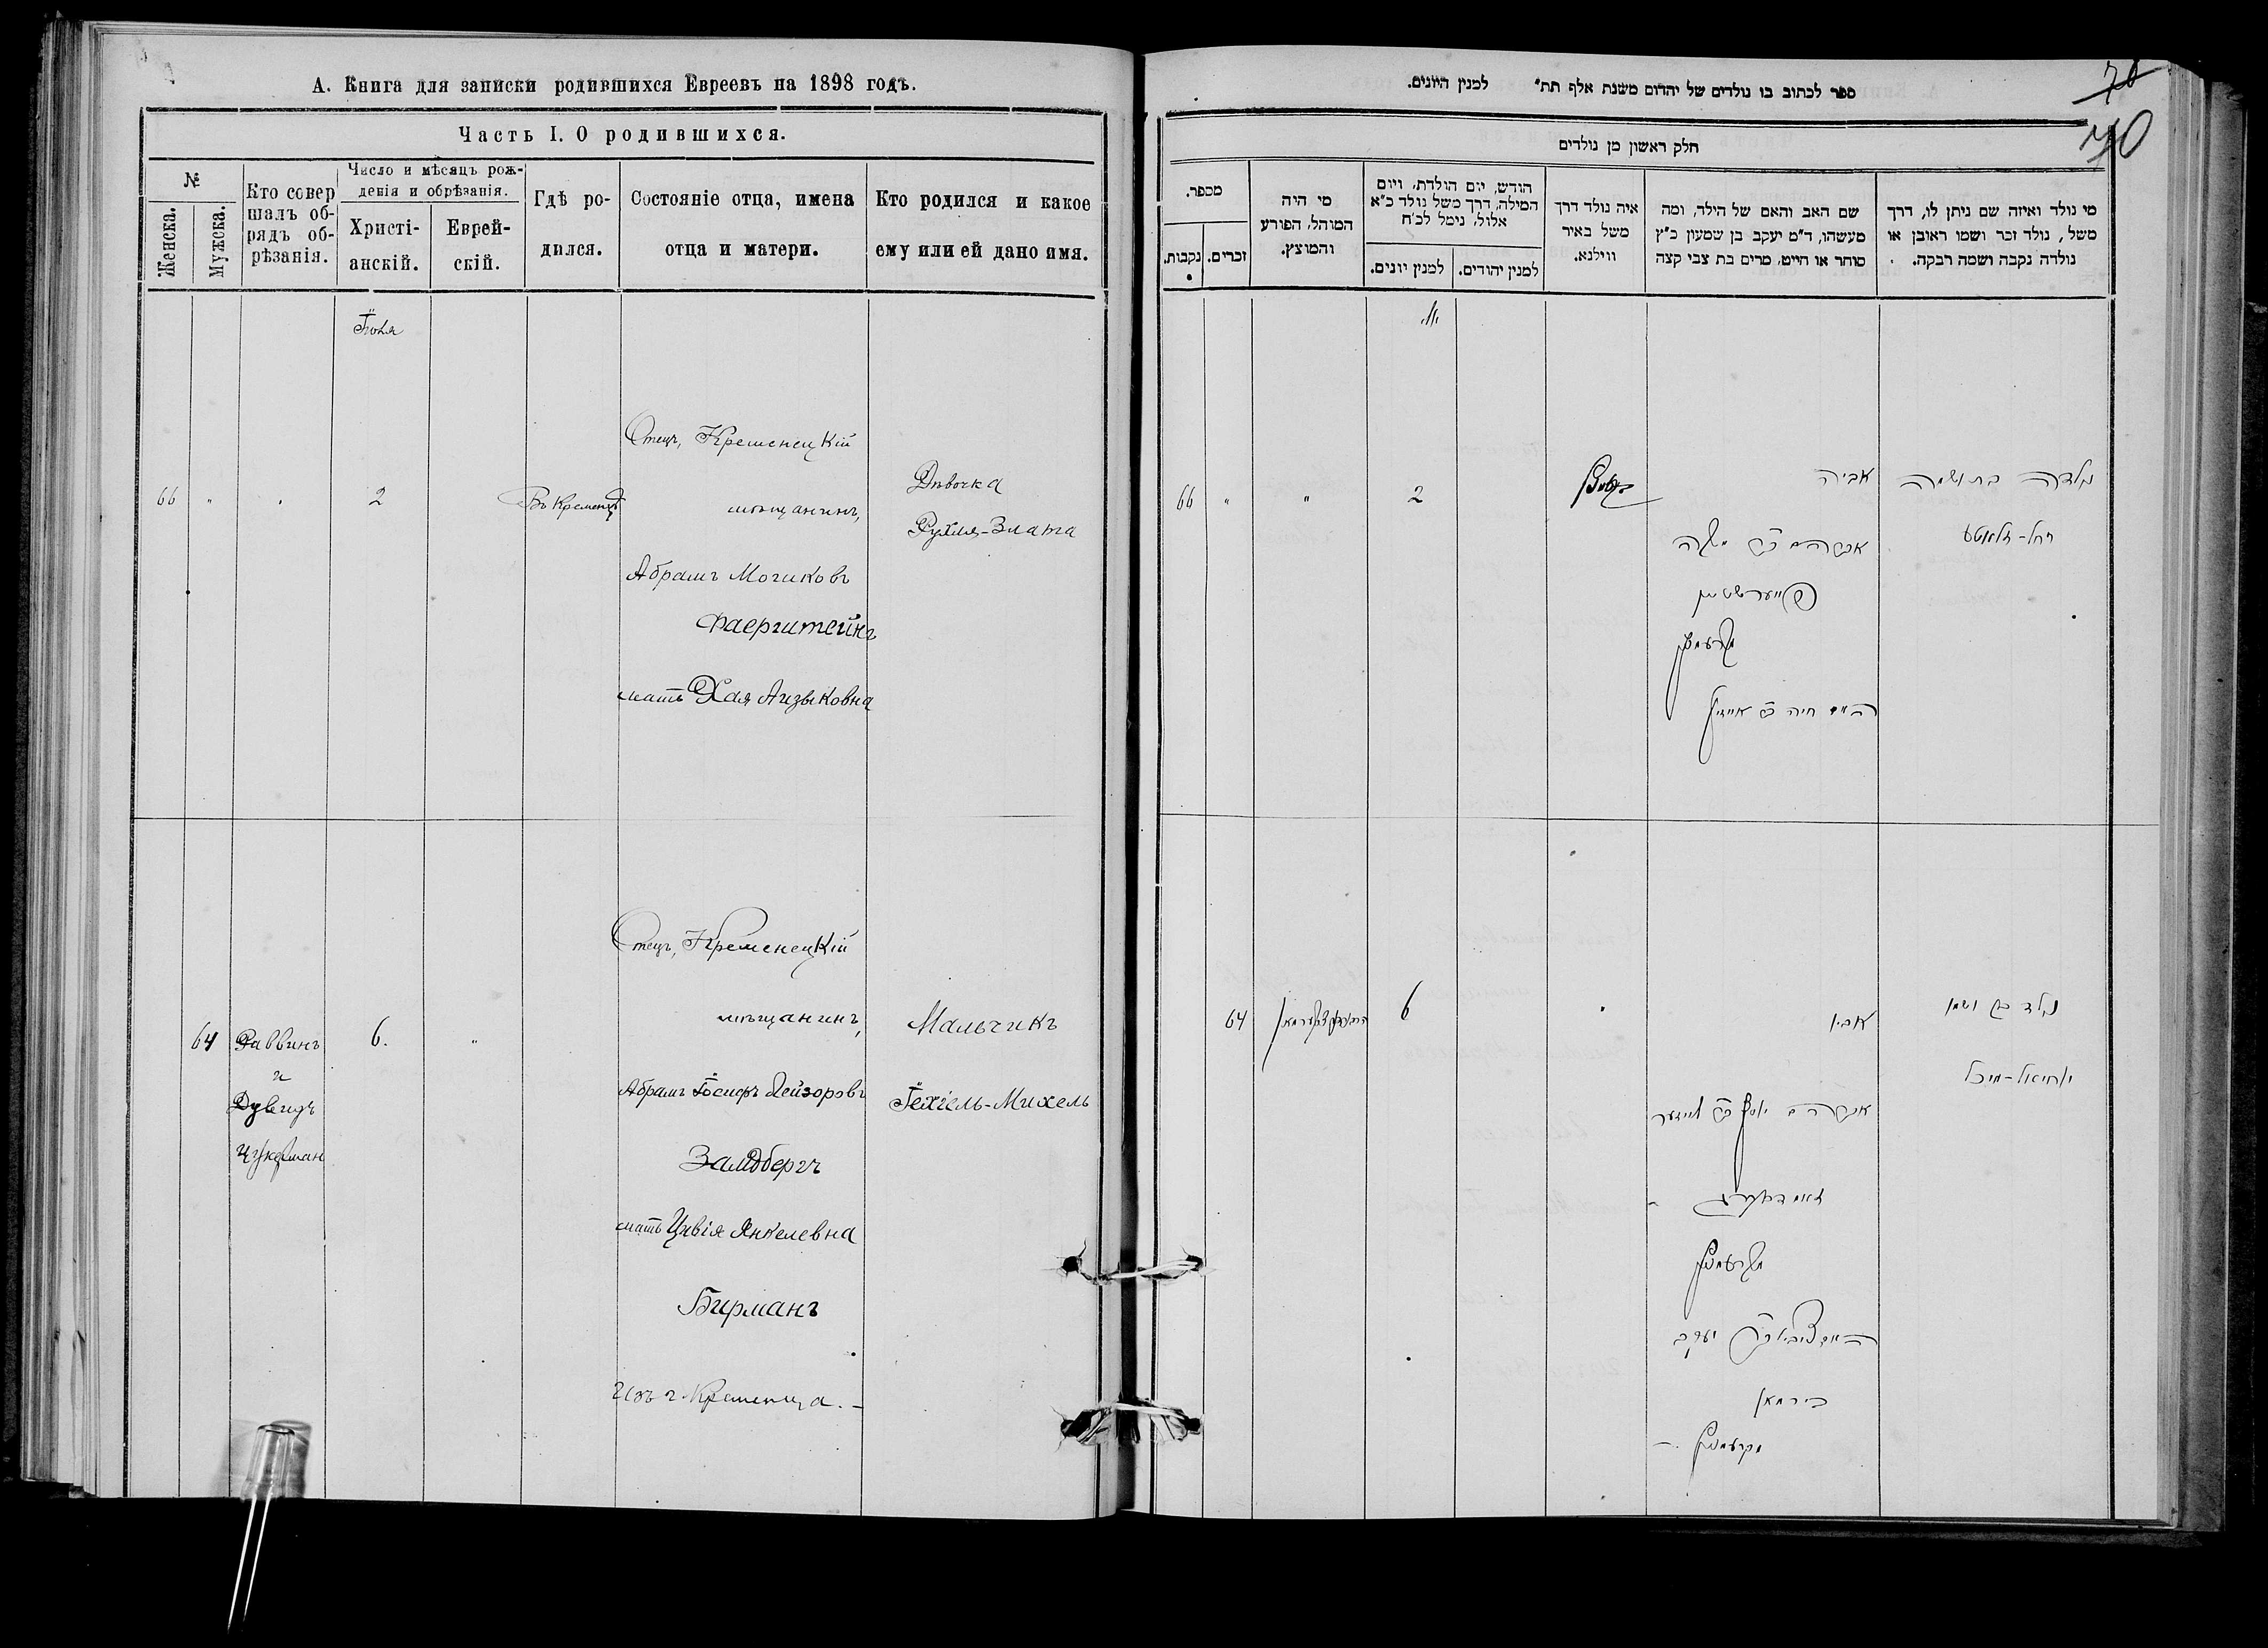 А. Книга для записки родившихся Евреевъ на 1898 годъ.
Часть I. О родившихся.
№
Женска.
Мужска.
Кто совер
шалъ об-
рядъ об-
рѣзанія.
Число и мѣсяцъ рож-
денія и обрѣзанія.
Христі-
анскій.
Еврей-
скій.
Гдѣ ро-
дился.
Состояніе отца, имена
отца и матери.
Кто родился и какое
ему или ей дано имя.
66
"
2
Въ Кременцѣ
Отецъ, Кременецкій
мѣщанинъ,
Абрамъ Мошковъ
Фаерштейнъ
мать Хая Айзыковна
Дѣвочка
Рухля-Злата
64
Раввинъ
и
Дувидъ
Цукерман
6.
"
Отецъ, Кременецкій
мѣщанинъ,
Абрамъ Іосифъ Лейзоровъ
Замдбергъ
мать Цивія Янкелевна
Бирманъ
Изъ г. Кременца. –
Мальчикъ
Іехіель-Михель
ספר לכתוב בו נולדים של יהדום משנת אלף תת" למנין היונים.
70
70
חלק ראשון מן נולדים
מספר.
נקבות.
זכרים.
מי היה
המוהל, הפורע
והמוצץ.
חודש, יום הולדת, ויום
המילה, דרך משל נולד כ"א
אלול, נימל לכ"ח
למנין יונים.
למנין יהודים.
איה נולד דרך
משל באיר
ווילנא.
שם האב והאם של הילד, ומה
מעשהו, ד"מ יעקב בן שמעון כ"ץ
סוחר או חייט, מרים בת צבי קצה
מי נולד ואיזה שם ניתן לו, דרך
משל, נולד זכר ושמו ראובן או
נולדה נקבה ושמה רבקה.
66
"
"
2
אביה
אברהם ב"ר משה
פייערשטיין
מקרעמניץ
האם חיה ב"ר אייזיק
נולדה בת ושמה
רחל-זלאטע
64
6
אביו
אברהם יוסף ב"ר לייזער
זאמדבערג
מקרעמניץ
האם צביה ב"ר יעקב
בירמאן
מקרעמניץ –
נולד בן ושמו
יחיאל-מיכל